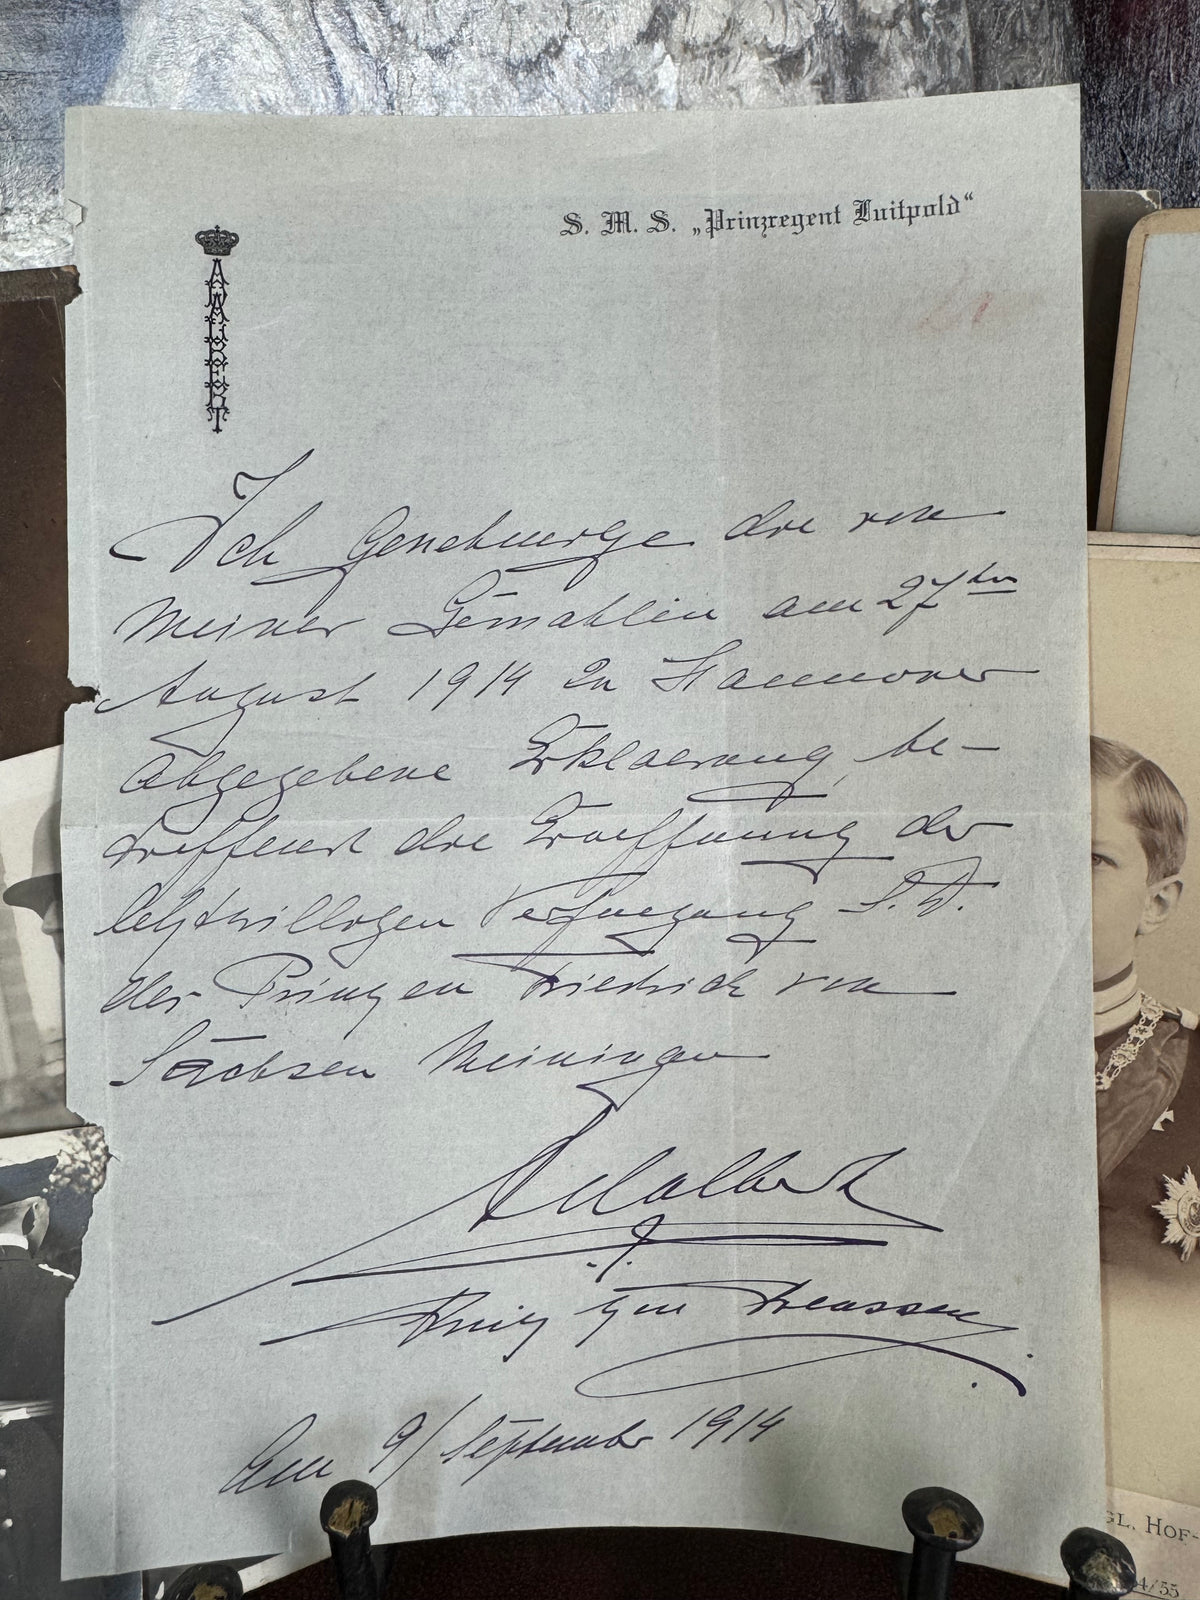 S. M. S. „Prinzregent Luitpold“
ADALBERT
Ich Genehmige die von
meiner Gemahlin am 27ten
August 1914 in Hannover
Abgegebene Erklaerung, be-
treffend die Eroeffnung der
letztwilligen Verfuegung S. D.
des Prinzen Friedrich von
Sachsen Meiningen
Adalbert
Prinz von Preussen
Am 9/September 1914
GL. HOF-
4/55